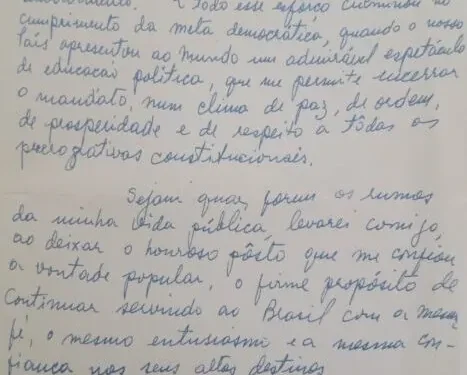 Todo esse esforço culminou no
cumprimento da meta democrática, quando o nosso
País apresentou ao mundo um admirável espetáculo
de educação política, que me permite encerrar
o mandato, num clima de paz, de ordem,
de prosperidade e de respeito a tôdas as
prerrogativas constitucionais.
Sejam quais forem os rumos
da minha vida pública, levarei comigo,
ao deixar o honroso pôsto que me confiou
a vontade popular, o firme propósito de
continuar servindo ao Brasil com a mesma
fé, o mesmo entusiasmo e a mesma con-
fiança nos seus altos destinos